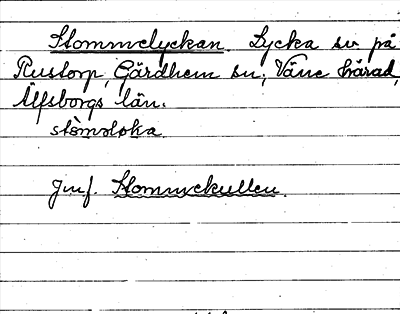 Stommelyckan. Lycka sv. på
Rustorp, Gärdhem sn, Väne härad,
Älfsborgs län.
stòmoloka
Jmf. Stommekullen.